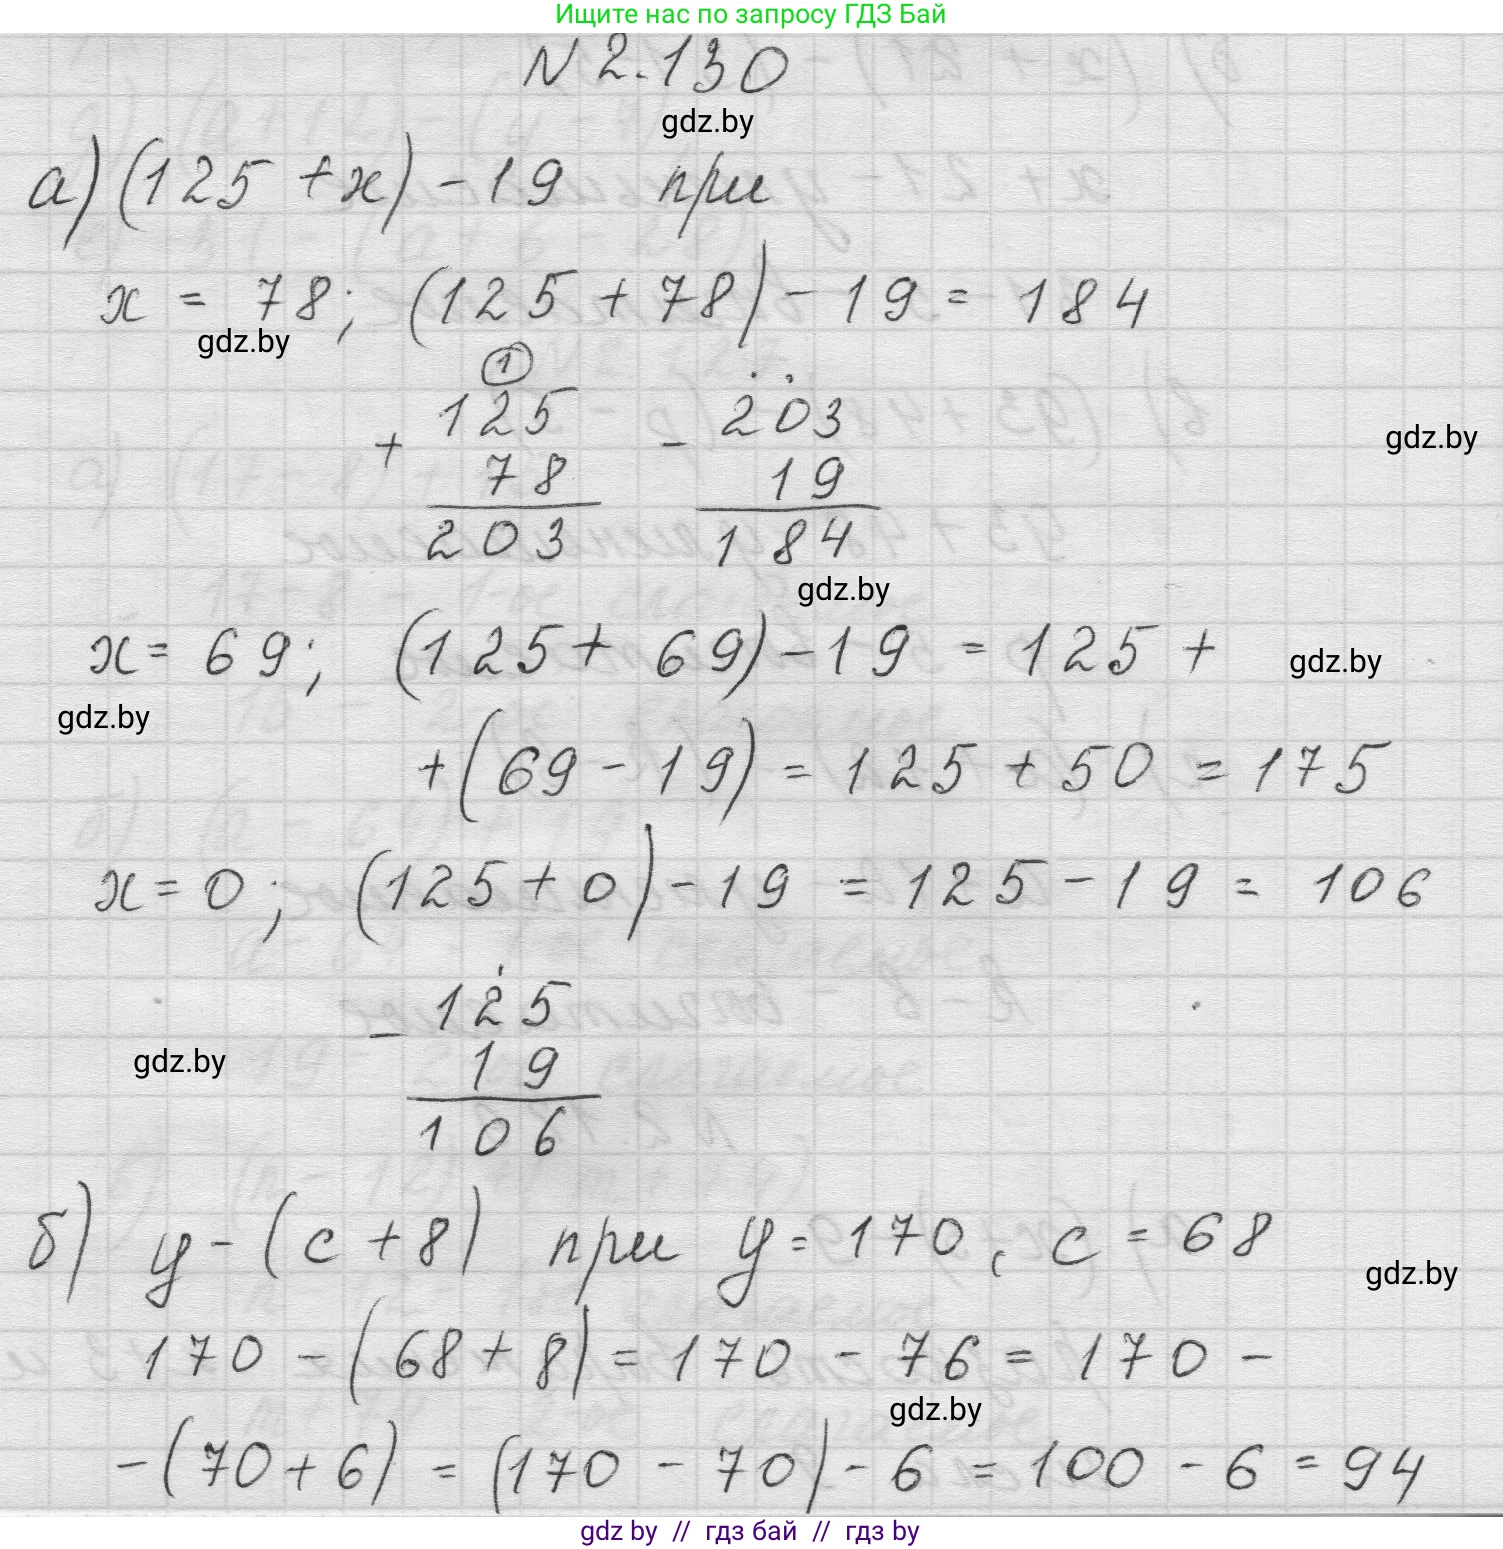 Ищите нас по запросу ГДЗ Бай
N 2.130
gdz.by
а) (125 + x) - 19 при
x = 78; (125 + 78) - 19 = 184
gdz.by
1
+ 125 - 203
gdz.by
78 19
203 184
gdz.by
x = 69; (125 + 69) - 19 = 125 +
gdz.by
gdz.by
+ (69 - 19) = 125 + 50 = 175
x = 0; (125 + 0) - 19 = 125 - 19 = 106
- 125
gdz.by
19
106
б) y - (c + 8) при y = 170, c = 68
gdz.by
170 - (68 + 8) = 170 - 76 = 170 -
gdz.by
- (70 + 6) = (170 - 70) - 6 = 100 - 6 = 94
gdz by // гдз бай // гдз by